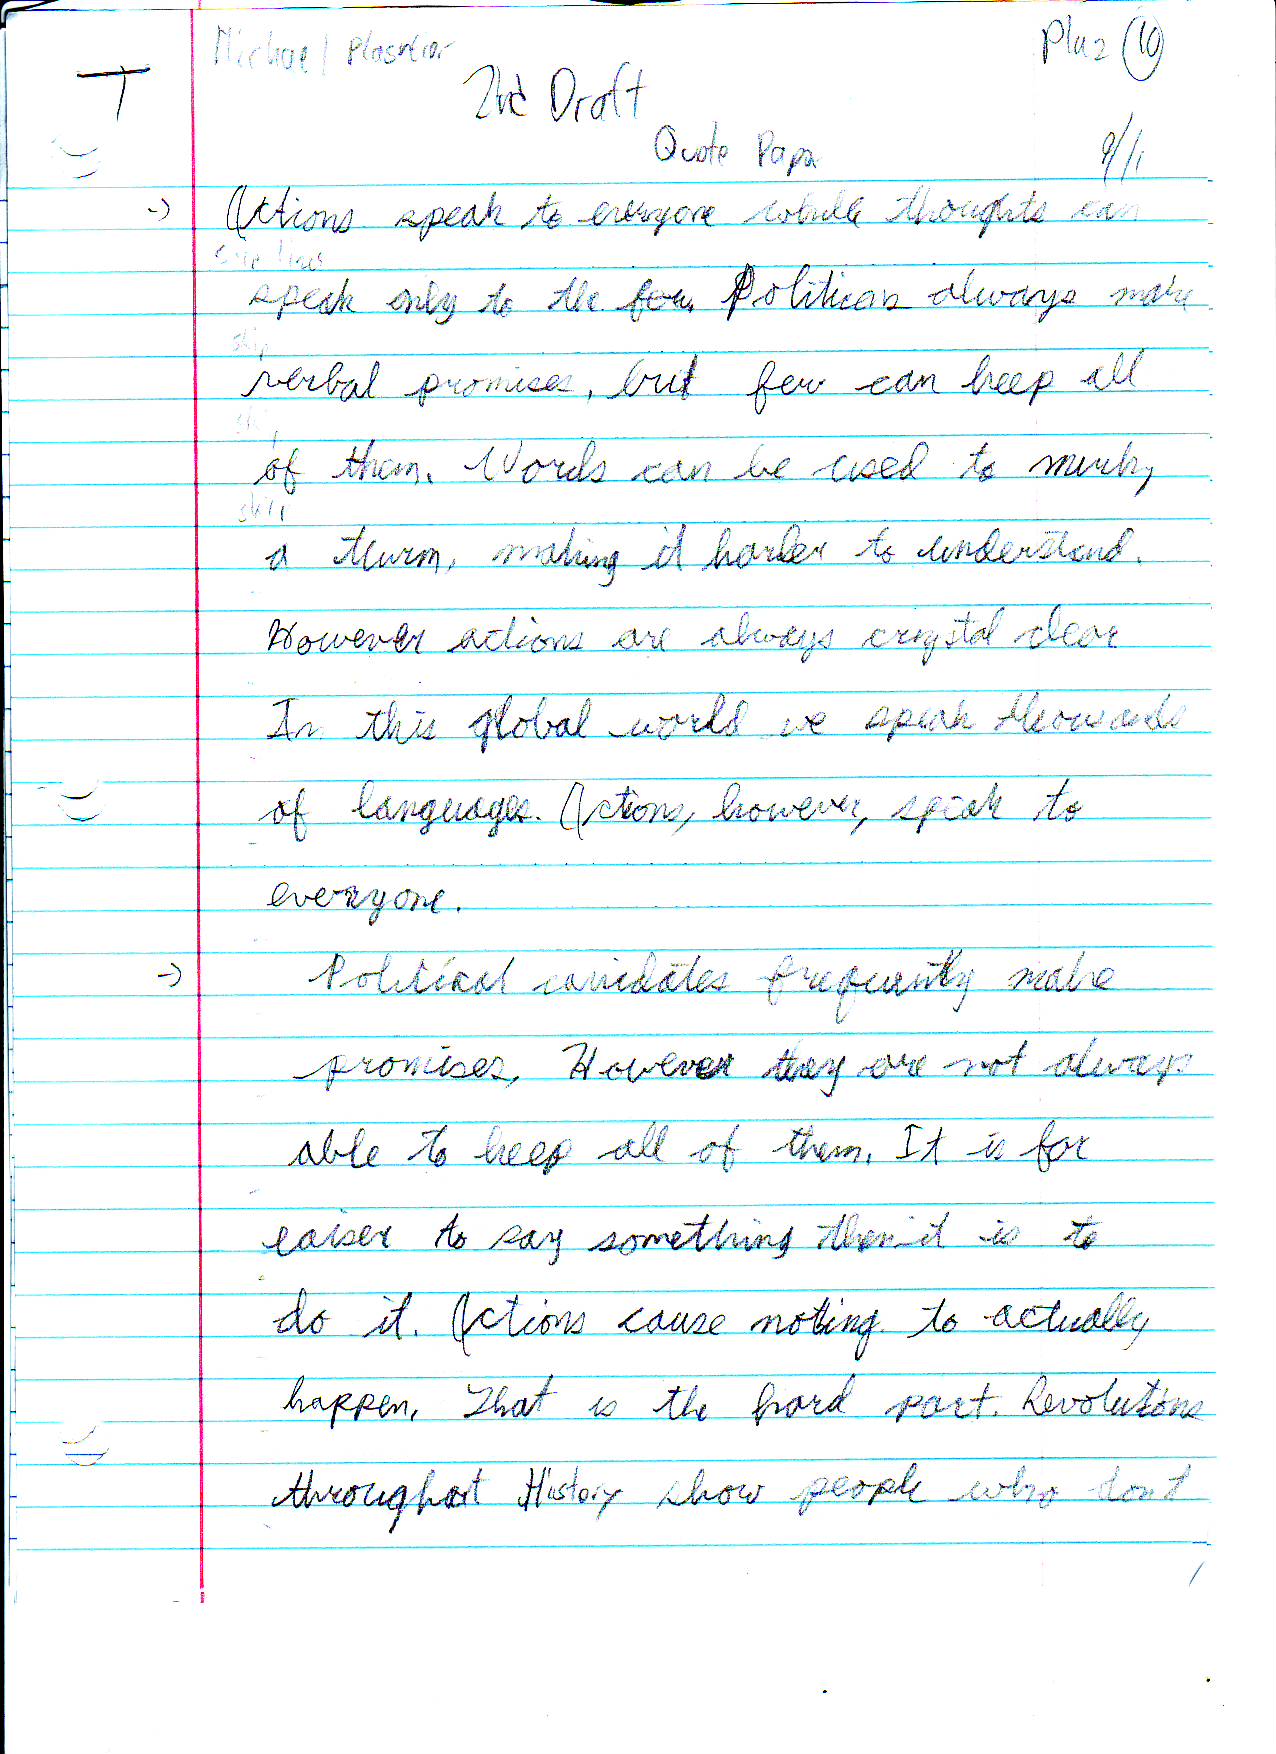 Michael
Plaz 10
T
2nd Draft
Quote Papr
9/11
-> Actions speak to everyone while thoughts can
skip lines
speak only to the few. Politicans always make
skip
verbal promises, but few can keep all
ski
of them. Words can be used to murky
skip
a thurm, making it harder to understand.
However actions are always crystal clear
In this global world we speak thousands
of languages. Actions, however, speak to
everyone.
-> Political canidates frequently make
promises. However they are not always
able to keep all of them. It is far
eaiser to say something then it is to
do it. Actions cause noting to actually
happen. That is the hard part. Revolutions
throughout History show people who dont